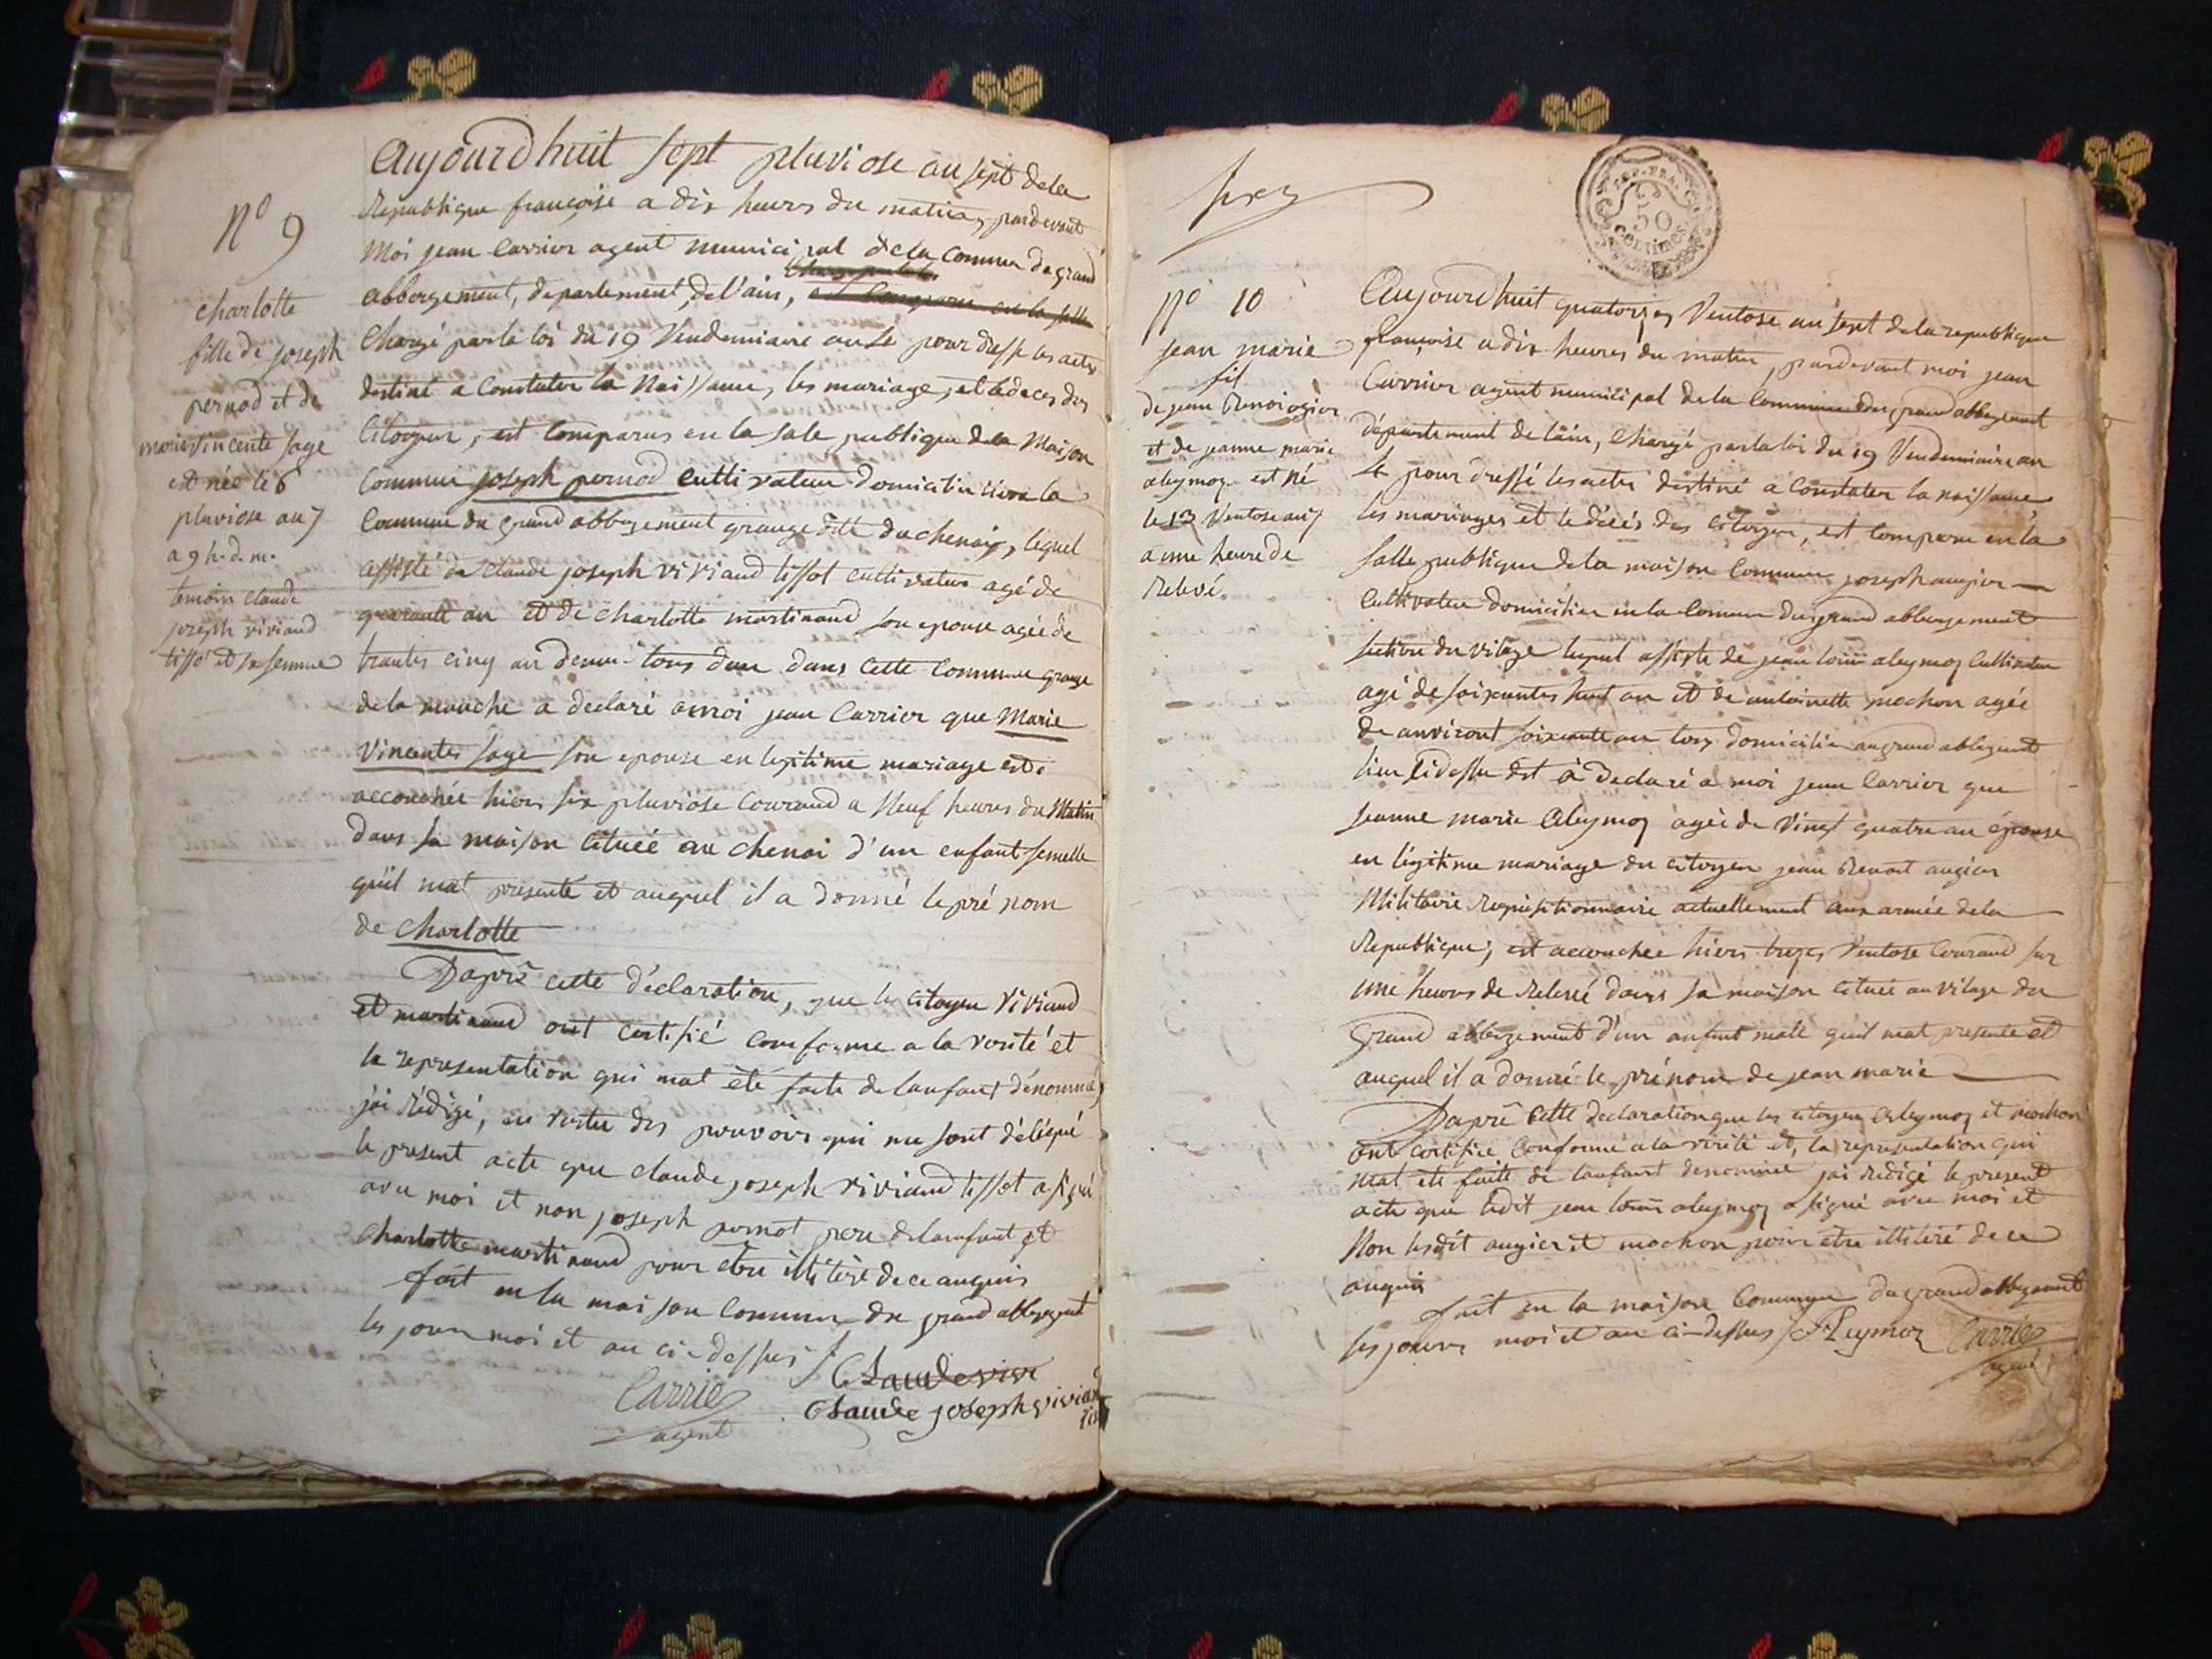 Aujourdhuit sept pluviose an sept dela
Republique françoise a dix heures du matin, pardevant
Moi jean Carrier agent municipal dela commun de grand
abbergement, departement, del'ain,
Chargé par la loi du 19 Vendemiaire an 4e pour dresse les actes
destiné a Constater la Naissance, les mariage, et le deces des
Citoyen, est comparus en la sale publique de la Maison
Commun joseph pernod Cultivateur domicilié
Commune du grand abbergement grange ditte du chenai, lequel
assisté de claude joseph viviand tissot cultivateur agé de
quarante an et de charlotte martinand son epouse agée de
trantes cinq an dans cette Commune grange
de la manche a declaré a moi jean Carrier que Marie
Vincentes sage son epouse en legitime mariage est
accouchée hiers six pluviose Courand a Neuf heures du Matin
dans sa maison cituée au chenai d'un enfant femelle
quil mat presenté et auquel il a donné le pré nom
de charlotte
Daprè cette déclaration, que les citoyen viviand
et martinand ont certifié conforme a la verité et
la representation qui mat été faite de lanfant dénommé
jai rédigé, en vertu des pouvoirs qui me sont délégué
le present acte que claude joseph viviand tissot a signé
avec moi et non joseph pernot pere de lanfant et
Charlotte martinand pour etre illiteré de ce anquis
fait en la maison Commun du grand abbergement
les jour moi et an ci-dessus
Claudeviv
Carrier
Claude joseph vivian
agent
N° 9
charlotte
fille de joseph
pernod et de
marie vincente sage
est née le 6
pluviose an 7
a 9 h. d. m.
temoin claude
joseph viviand
tissot et sa femme
REP. FRA.
50
centimes
N° 10
jean marie
fil
de jean
et de jeanne marie
aleymoz est né
le 13 Ventose an 7
a une heure de
Relevé
Aujourdhuit quatorzes Ventose an sept de la republique
françoise a dix heures du matin, pardevant moi jean
Carrier agent municipal de la Commune du grand abbergement
département de lain, Chargé par la loi du 19 Vendemiaire an
4e pour dressé les actes destiné a Constater la naissance
les mariages et le décés des Citoyen, est comparu en la
Salle publique de la maison Commun joseph augier
Cultivateur domicilier en la Commun du grand abbergement
section du vilage lequel assisté de jean louis aleymoz Cultivateur
agé de soixantes huit an et de antoinette mochon agée
de anviront soixante an tous domicilié au grand abbergement
lieu cidessu à declaré a moi jean Carrier que
Jeanne marie Aleymoz agée de vingt quatre an épouse
en légitime mariage du citoyen jean Benoit augier
Militaire requisitionnaire actuellement aux armée dela
Republique, est accouchée hiers trezes Ventose Courand sur
une heures de relevée dans sa maison cituée au vilage du
grand abbergement d'un anfant male quil mat presenté et
auquel il a donné le prénom de jean marie
Daprè cette declaration que les citoyen Aleymoz et mochon
ont certifiée Conforme a la vérité et, la representation qui
mat été faite de lanfant denommé jai redigé le present
acte que ledit jean louis aleymoz a signé avec moi et
Non lesdit augier et mochon pour etre illiteré de ce
anquis
fait en la maison Commun du grand abbergement
les jours moi et an ci-dessus Carrier
agent